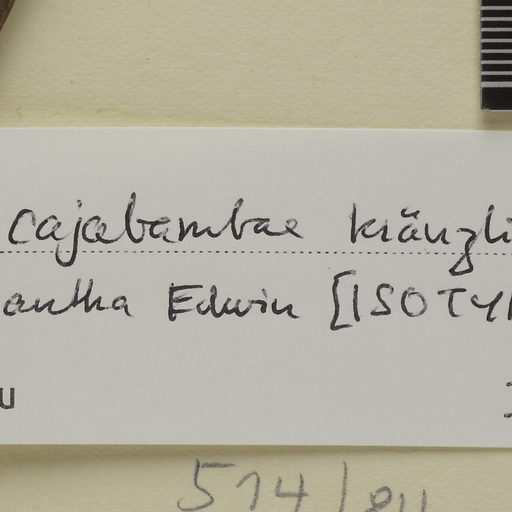 cajabambae kränzli
antha Edwin [ISOTYP
U
514/84